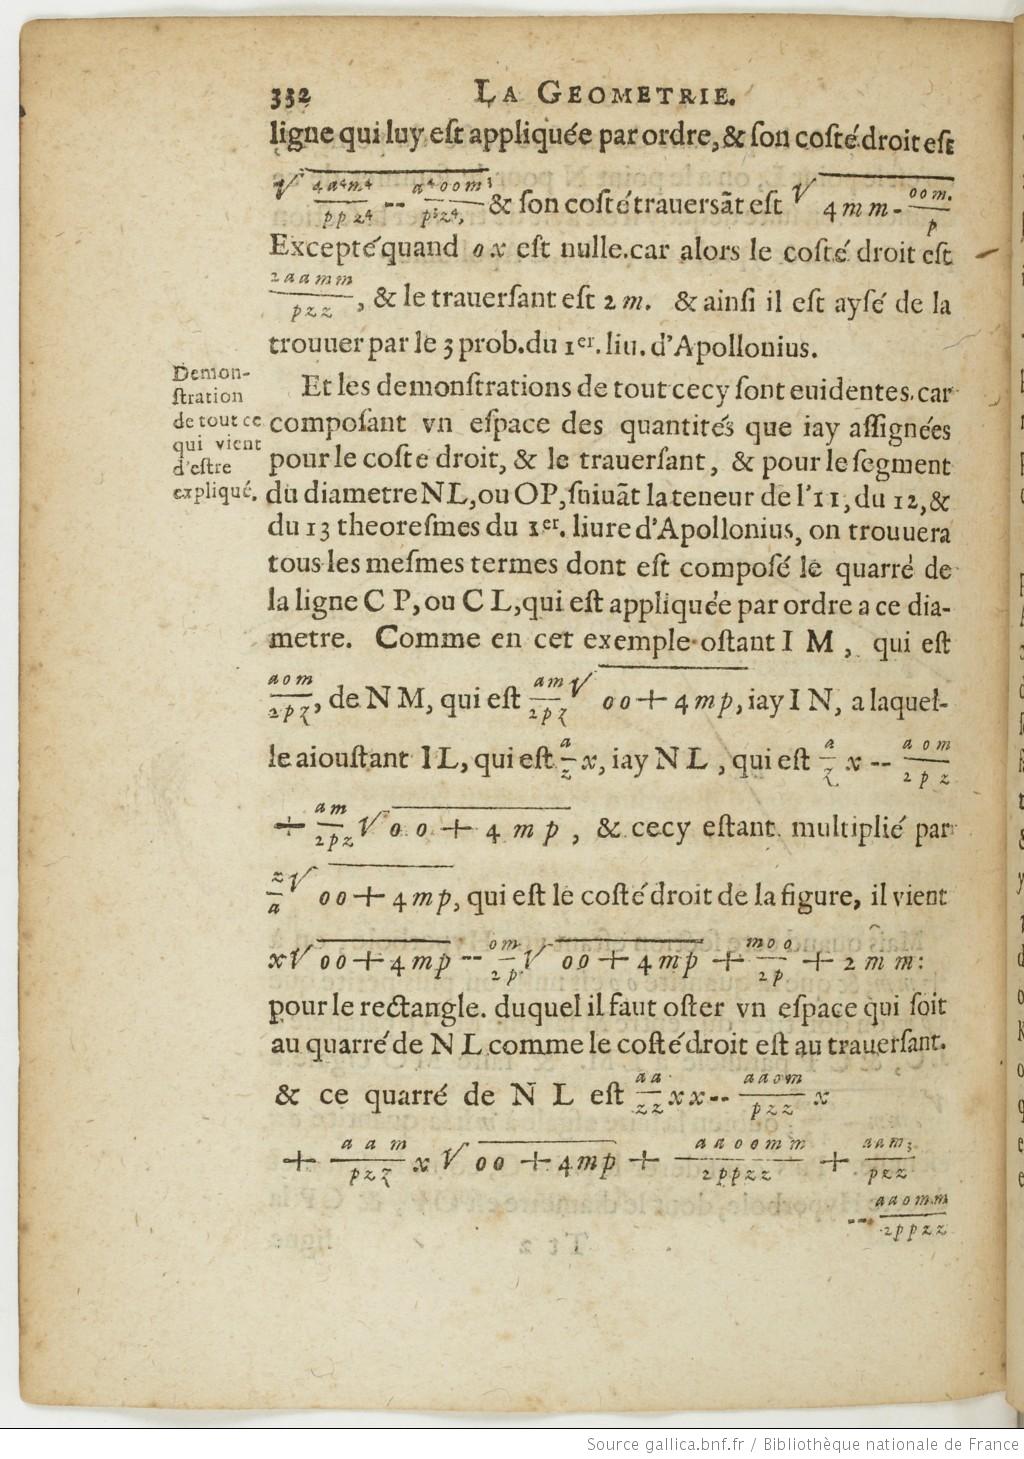 332 LA GEOMETRIE.
ligne qui luy est appliquée par ordre, & son costé droit est
√ 4a⁴m⁴/ppz⁴ -- a⁴oom³/p³z⁴, & son costé trauersãt est √ 4mm - oom./p
Excepté quand ox est nulle. car alors le costé droit est
2aamm/pzz, & le trauersant est 2m. & ainsi il est aysé de la
trouuer par le 3 prob. du 1er. liu. d'Apollonius.
Demon-
stration
de tout ce
qui vient
d'estre
expliqué.
Et les demonstrations de tout cecy sont euidentes. car
composant vn espace des quantités que iay assignées
pour le coste droit, & le trauersant, & pour le segment
du diametre NL, ou OP, suiuãt la teneur de l'11, du 12, &
du 13 theoresmes du 1er. liure d'Apollonius, on trouuera
tous les mesmes termes dont est composé le quarré de
la ligne C P, ou C L, qui est appliquée par ordre a ce dia-
metre. Comme en cet exemple ostant I M, qui est
aom/2pz, de N M, qui est am/2pz √ oo + 4mp, iay I N, a laquel-
le aioustant IL, qui est a/z x, iay N L, qui est a/z x -- aom/2pz
+ am/2pz √ oo + 4mp, & cecy estant multiplié par
z/a √ oo + 4mp, qui est le costé droit de la figure, il vient
x √ oo + 4mp -- om/2p √ oo + 4mp + moo/2p + 2mm:
pour le rectangle. duquel il faut oster vn espace qui soit
au quarré de N L comme le costé droit est au trauersant.
& ce quarré de N L est aa/zz xx -- aaom/pzz x
+ aam/pzz x √ oo + 4mp + aaoomm/2ppzz + aam3/pzz
-- aaomm/2ppzz
Source gallica.bnf.fr / Bibliothèque nationale de France